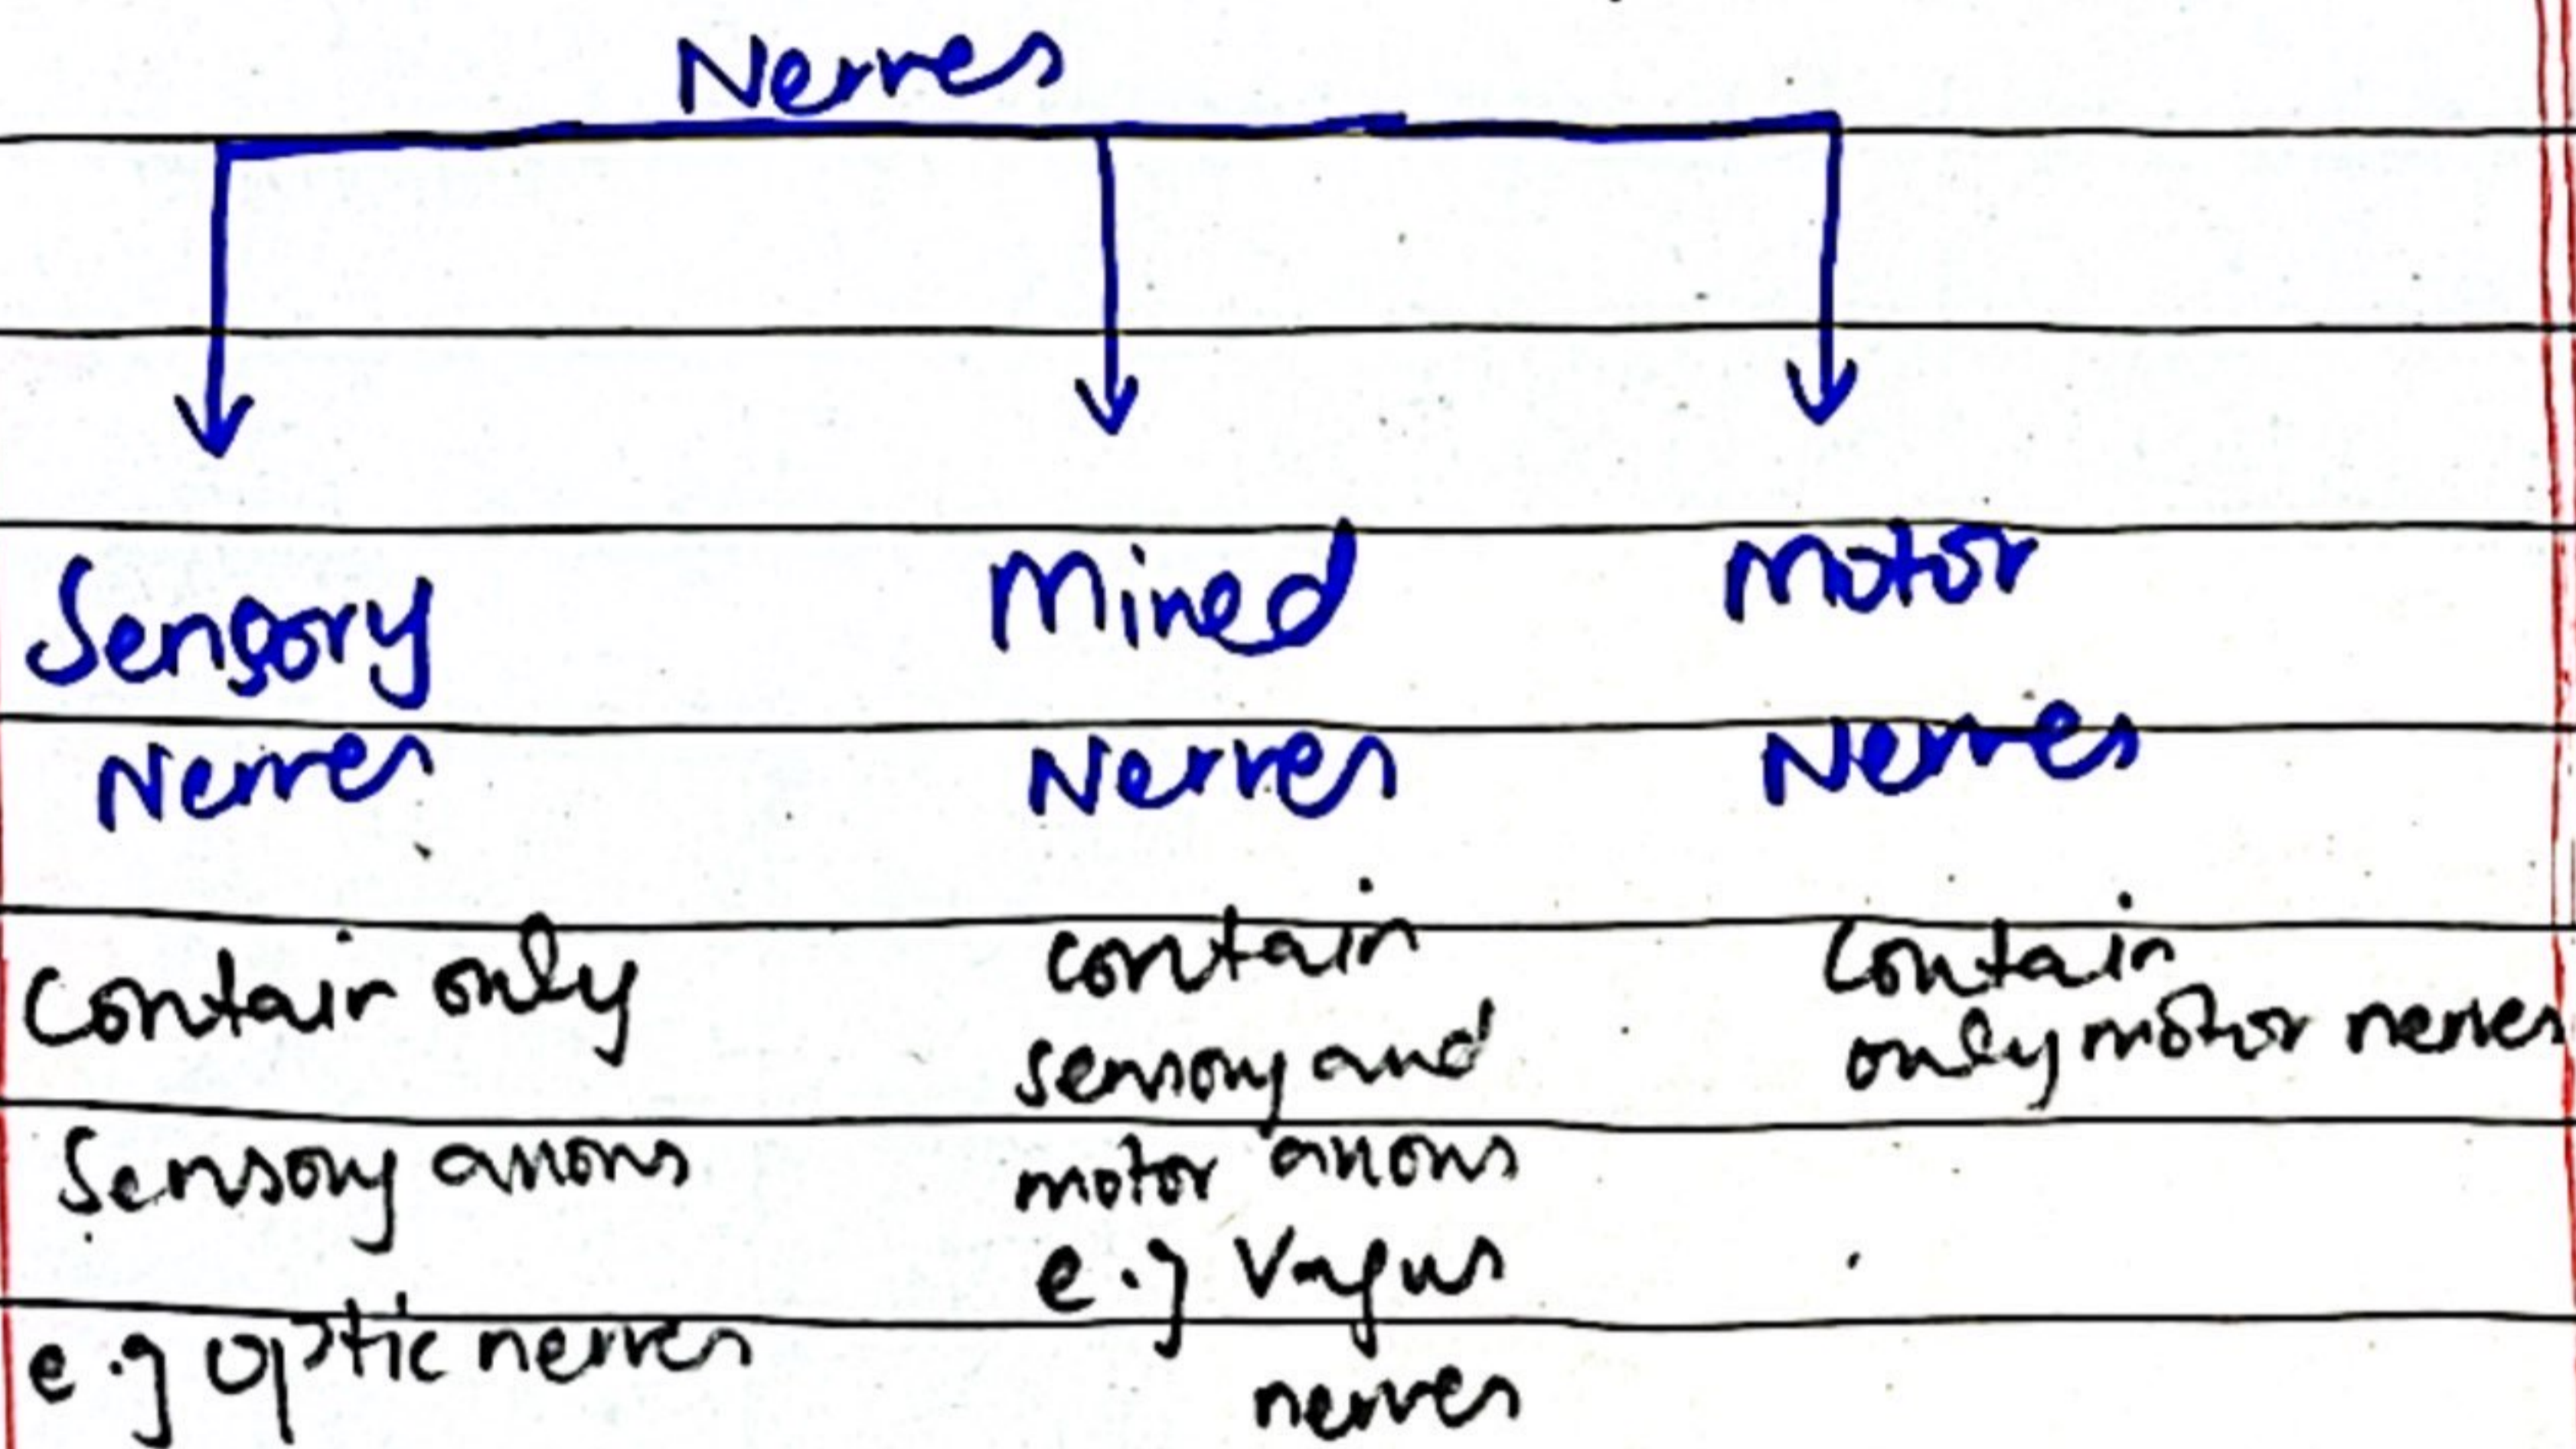 Nerves
Sensory
Nerves
Contain only
Sensory axons
e.g optic nerves
Mixed
Nerves
contain
sensory and
motor axons
e.g Vagus
nerves
Motor
Nerves
Contain
only motor nerves